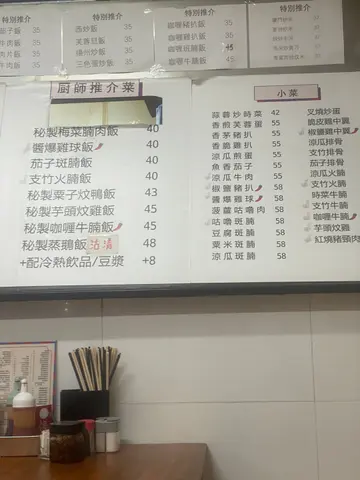 特別推介
特別推介
特別推介
特別推介
茄子飯 35
牛肉飯 35
肉片飯 35
牛肉飯 35
西炒飯 35
芙蓉豆飯 35
揚州炒飯 35
三色蛋炒飯 35
咖喱豬扒飯 35
咖喱雞扒飯 35
咖喱斑腩飯 45
咖喱牛腩飯 45
廚師推介菜
40
秘製梅菜腩肉飯 40
醬爆雞球飯 40
茄子斑腩飯 40
支竹火腩飯 40
秘製栗子炆鴨飯 43
秘製芋頭炆雞飯 45
秘製咖喱牛腩飯 45
秘製蒸鵝飯 沽清 48
+配冷熱飲品/豆漿 +8
小菜
蒜蓉炒時菜 42
香煎芙蓉蛋 55
香茅豬扒 55
香脆雞扒 55
涼瓜煎蛋 55
魚香茄子 55
涼瓜牛肉 55
椒鹽豬扒 58
醬爆雞球 58
菠蘿咕嚕肉 58
咕嚕斑腩 58
豆腐斑腩 58
粟米斑腩 58
涼瓜斑腩 58
叉燒炒蛋
脆皮雞中翼
椒鹽雞中翼
涼瓜排骨
支竹排骨
茄子排骨
涼瓜火腩
支竹火腩
時菜牛腩
支竹牛腩
咖喱牛腩
芋頭炆雞
紅燒豬頸肉